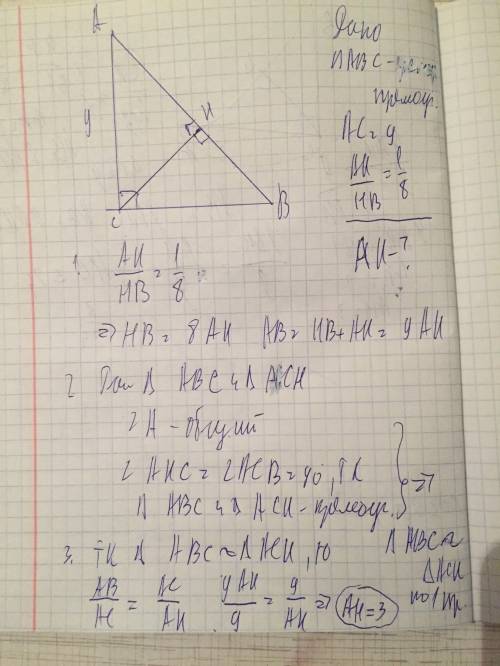 A
9
H
C
B
Дано
ΔABC –
прямоуг.
AC = 9
AH/HB = 1/8
AH – ?
1. AH/HB = 1/8
⇒ HB = 8AH AB = HB + AH = 9AH
2 Рас Δ ABC и Δ ACH
∠A – общий
∠AHC = ∠ACB = 90, тк
Δ ABC и Δ ACH – прямоуг.
} ⇒
Δ ABC ~
Δ ACH
по 1 пр.
3. тк Δ ABC ~ Δ ACH, то
AB/AC = AC/AH 9AH/9 = 9/AH ⇒ AH = 3